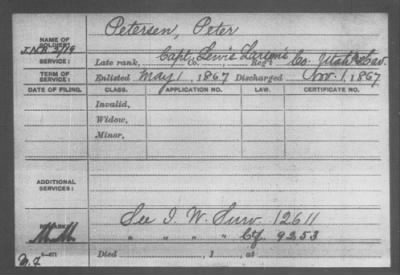 NAME OF SOLDIER: Petersen, Peter
SERVICE: Late rank, Capt. Lewis Larson's Co. Utah Cav.
Co. Reg't
TERM OF SERVICE: Enlisted May 1, 1867 Discharged Nov. 1, 1867
DATE OF FILING. CLASS. APPLICATION NO. LAW. CERTIFICATE NO.
Invalid,
Widow,
Minor,
ADDITIONAL SERVICES:
See I. W. Surv 12611
REMARKS: " " " " Ctf 9253
Died , 1 , at